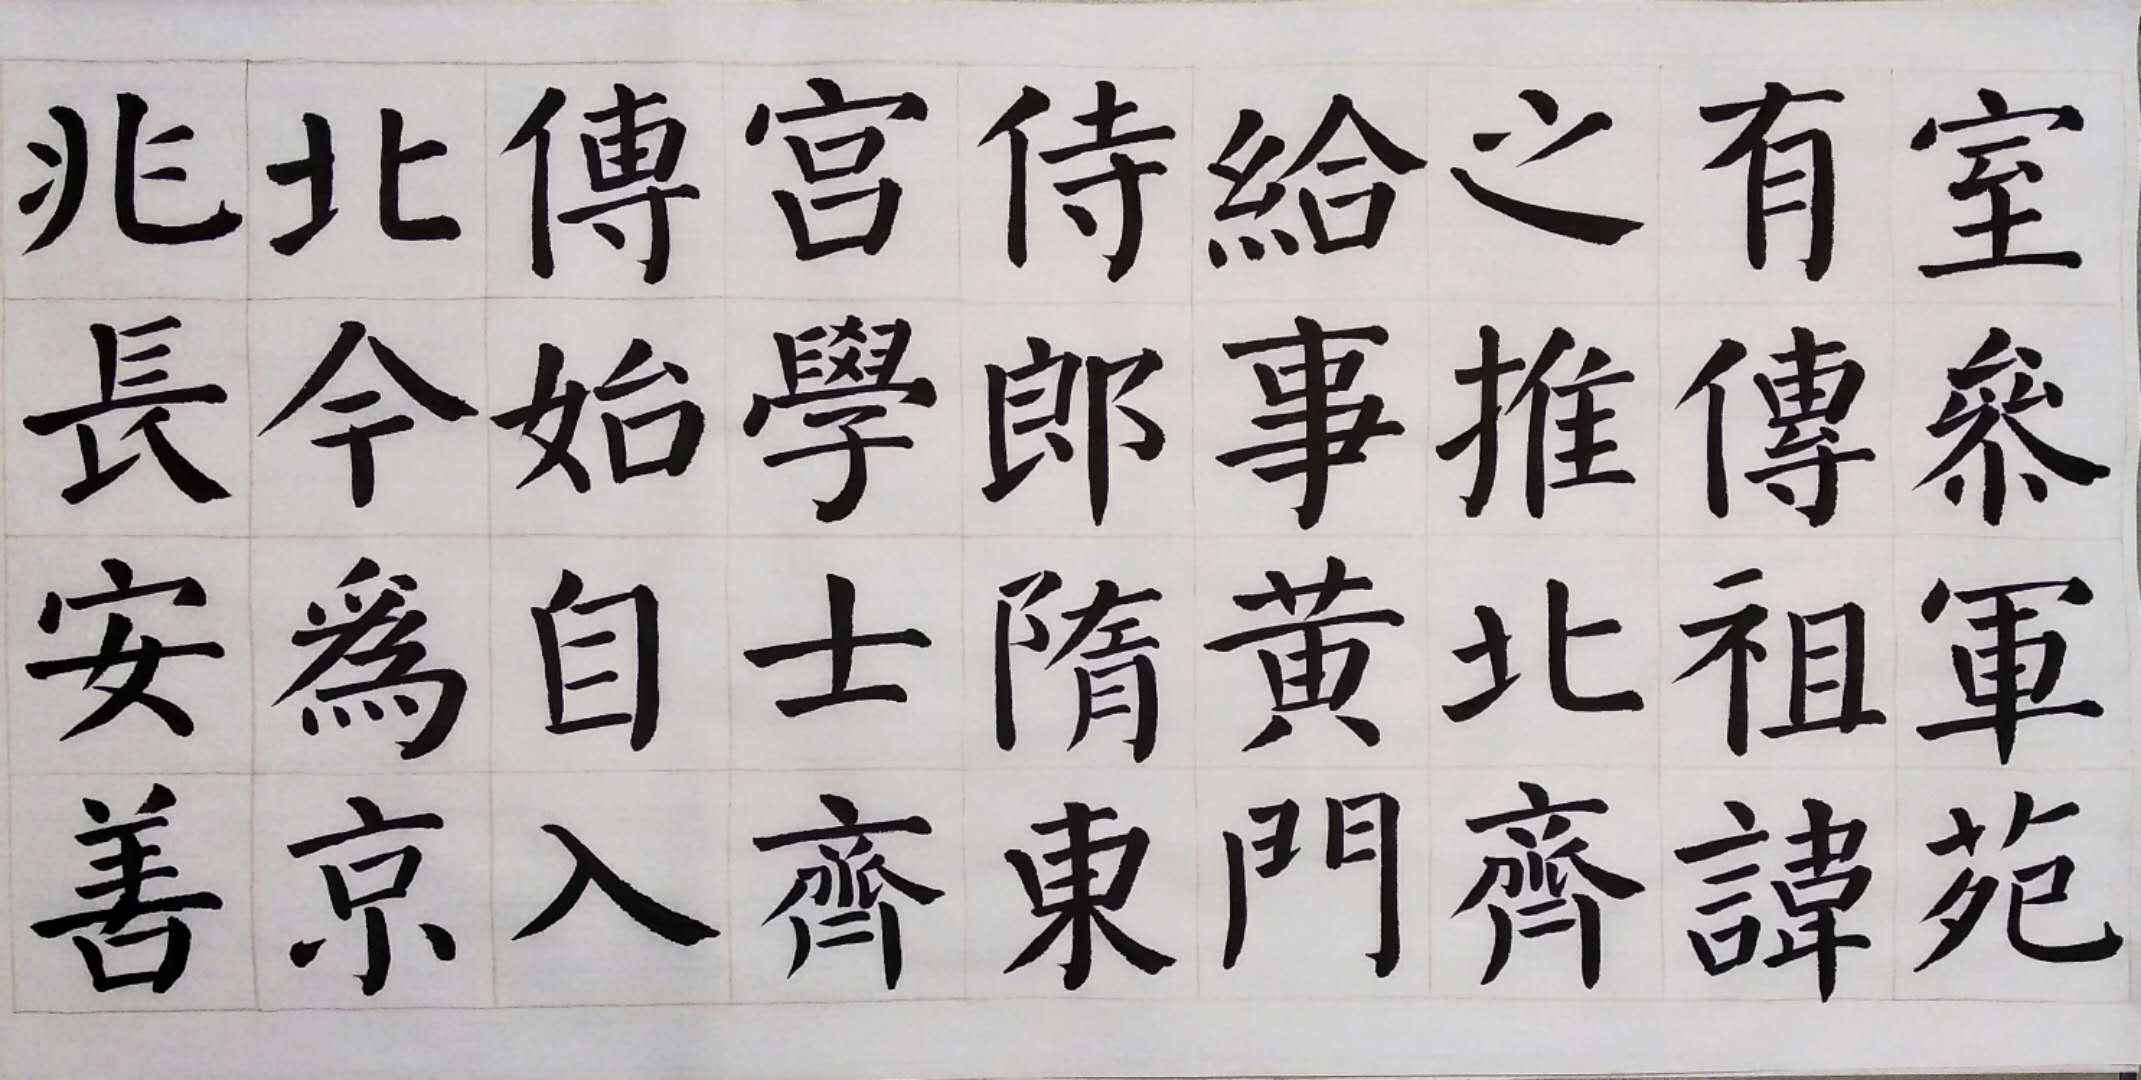 室參軍苑
有傳祖諱
之推北齊
給事黃門
侍郎隋東
宮學士齊
傳始自入
北今爲京
兆長安善